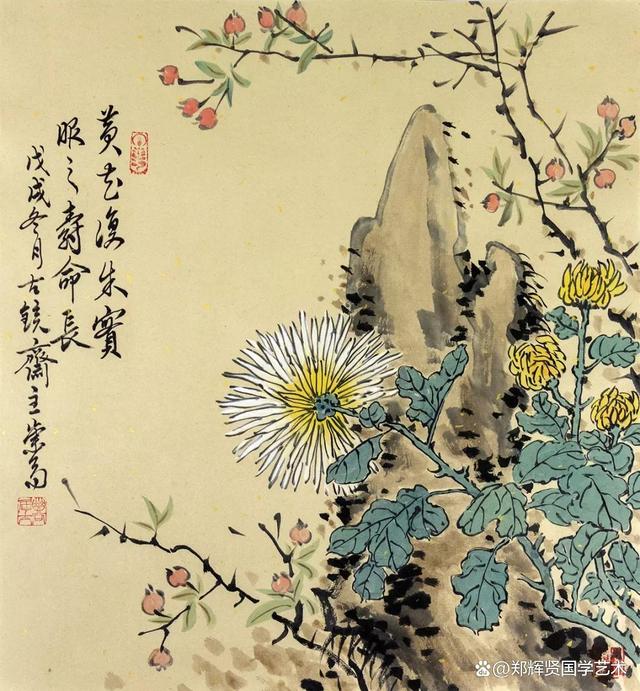 黄花復朱實
服之壽命長
戊戌冬月古鏡齋主崇
@郑辉贤国学艺术